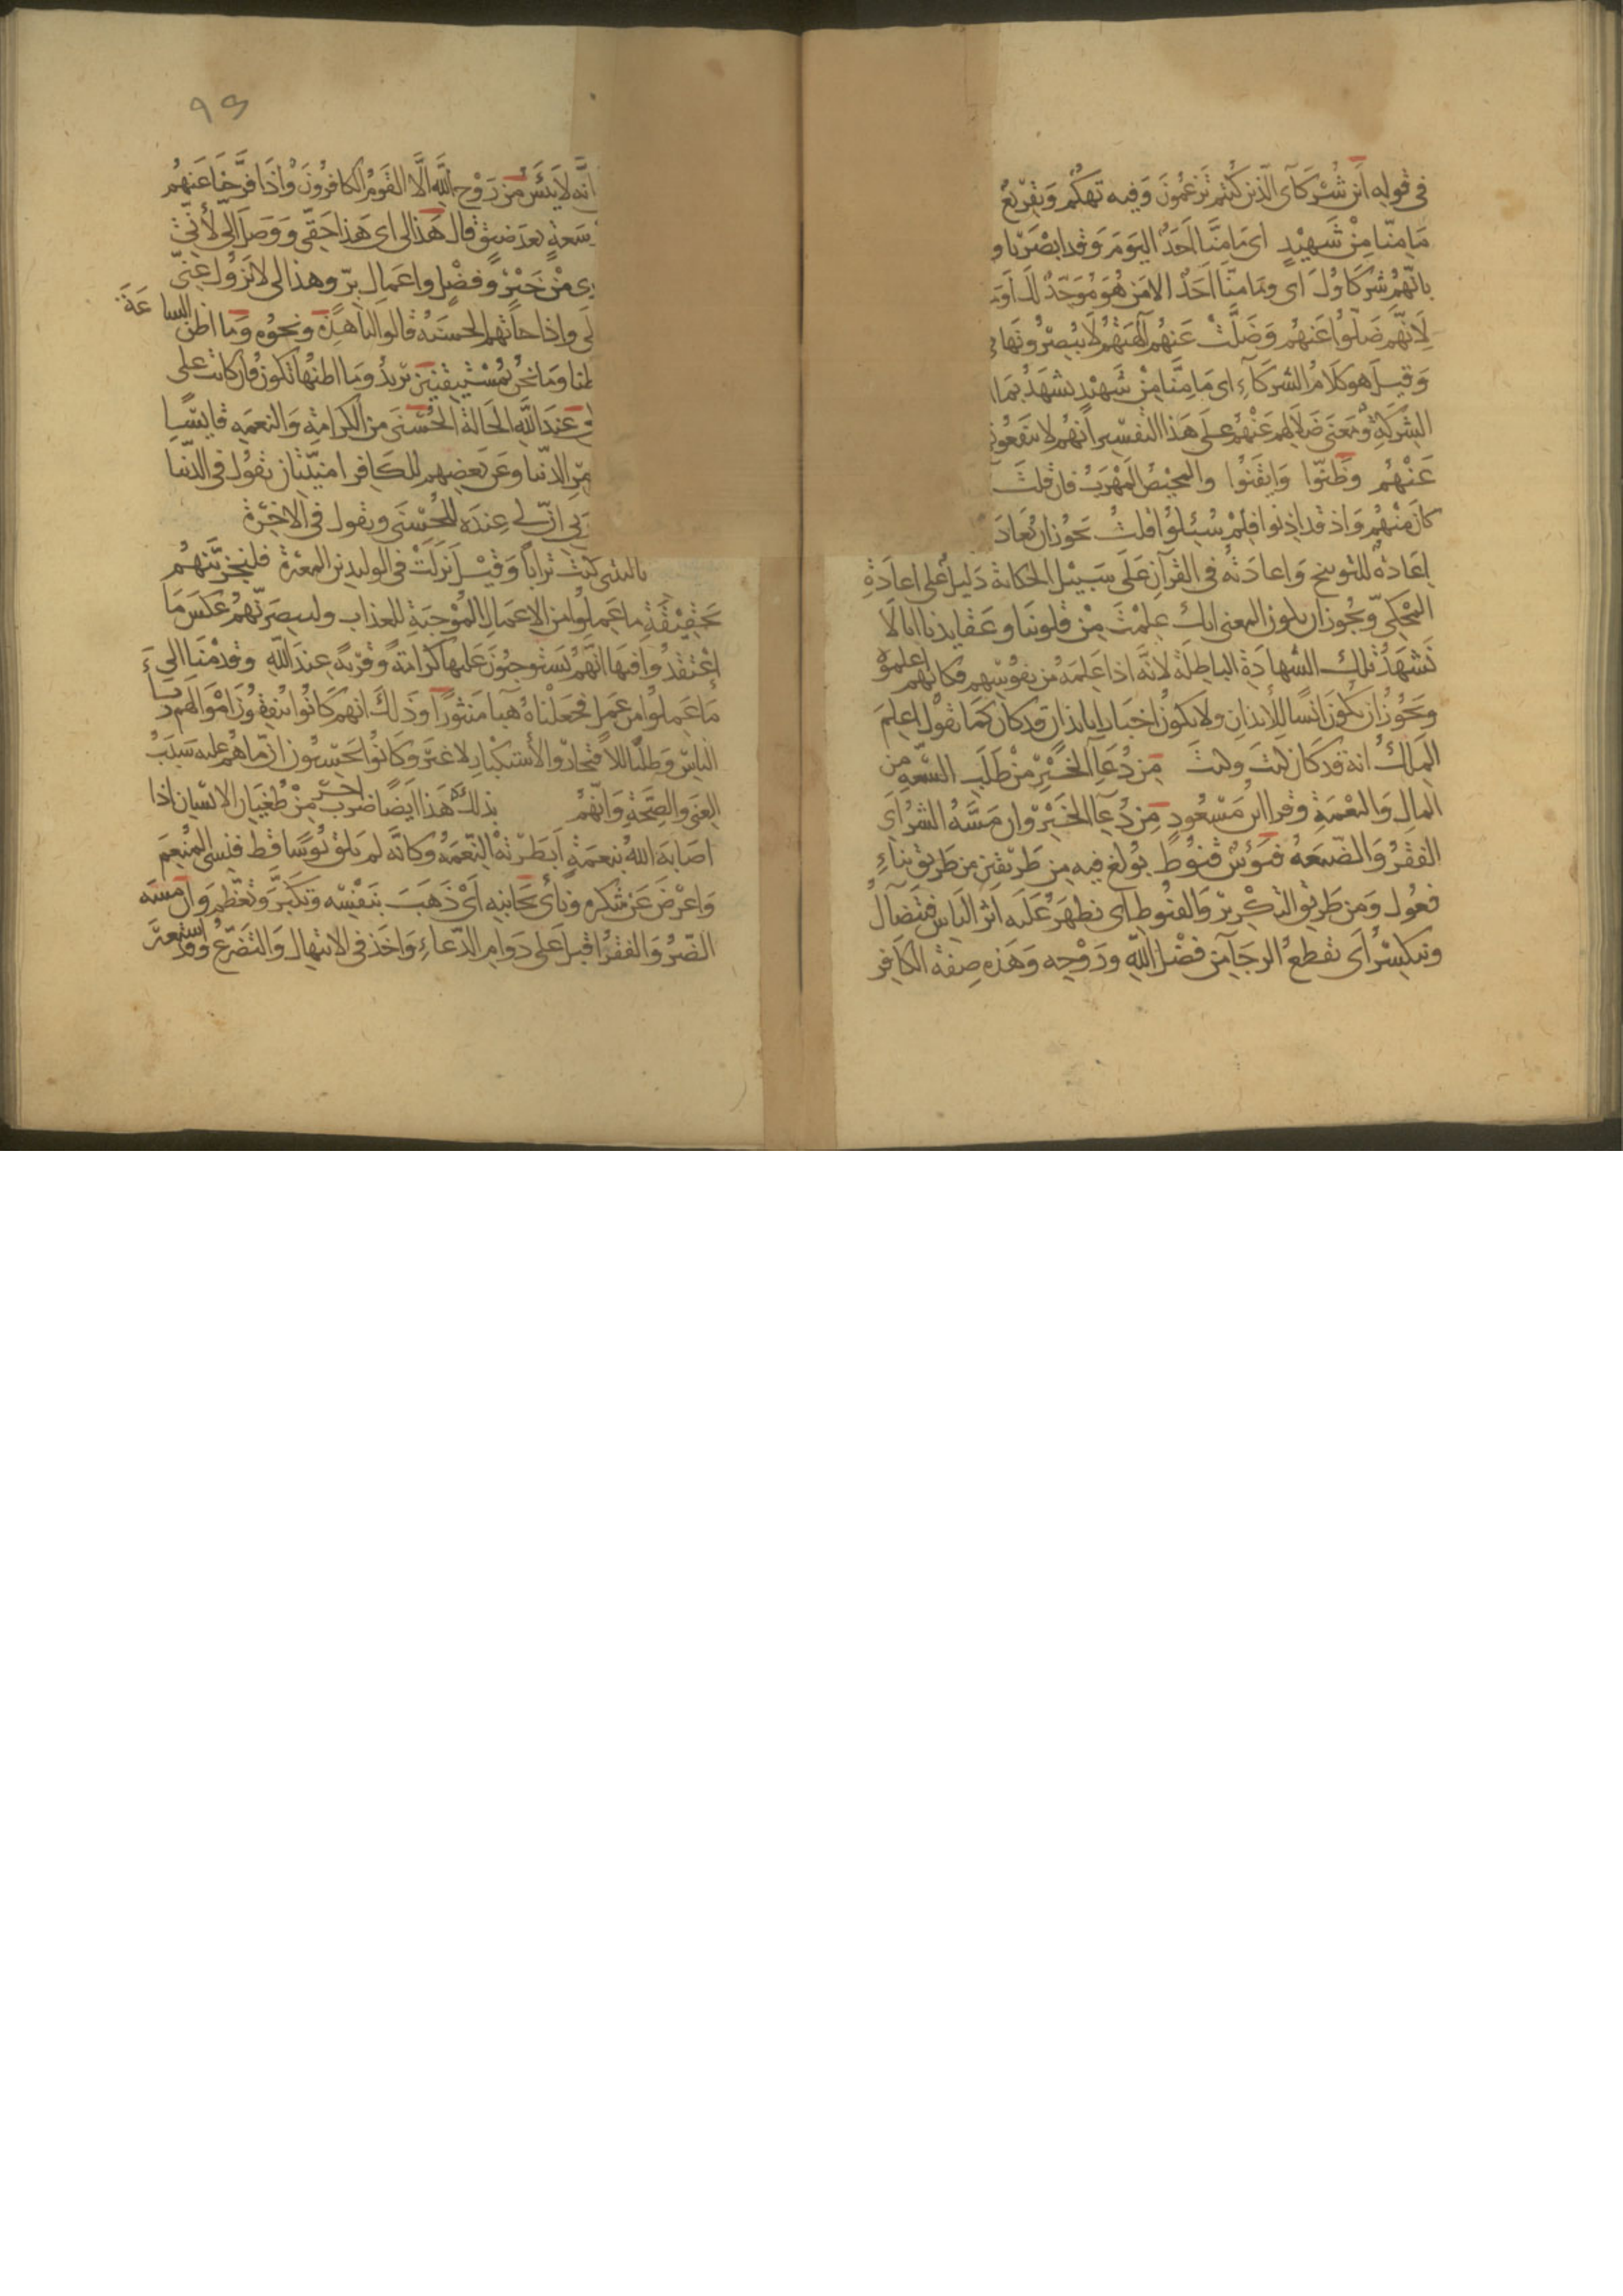 في قوله اين شركآى الذين كنتم تزعمون وفيه تهكم وتقريع
ما منا من شهيد اى ما منا احد اليوم وقد ابصرنا و
بانهم شركاؤك اى وما منا احد الا من هو موحد لك او
لانهم ضلوا عنهم وضلت عنهم آلهتهم لا يبصرونها في
وقيل هو كلام الشركآء اى ما منا من شهيد يشهد بما ا
الشركة ومعنى ضلالهم عنهم على هذا التفسير انهم لا ينفعون
عنهم وظنوا وايقنوا والمحيص المهرب فان قلت
كان منهم واذ قد اذنوا فلم سئلوا قلت يجوز ان يعاد
اعادة للتوبيخ واعادته في القرآن على سبيل الحكاية دليل على اعادة
المحكي ويجوز ان يكون المعنى انك علمت من قلوبنا وعقايدنا انا لا
نشهد تلك الشهادة الباطلة لانه اذا علمه من نفوسهم فكانهم اعلموه
ويجوز ان يكون انشا للايذان ولا يكون اخبارا بايذان قد كان كما تقول اعلم
الملك انه قد كان كيت وكيت من دعآ الخير من طلب السعة من
المال والنعمة وقرا ابن مسعود من دعآ الخير وان مسه الشر اى
الفقر والضيعه فيؤس قنوط بولغ فيه من طريقين من طريق بناء
فعول ومن طريق التكرير والقنوط اى يظهر عليه اثر الياس فيتضآل
وينكسر اى تقطع الرجآ من فضل الله وروحه وهذه صفة الكافر
٩٥
انه لا يئس من روح الله الا القوم الكافرون واذا فرجنا عنهم
سعة بعد ضيق قال هذا لى اى هذا حقى ووصل الى لأنى
ى من خير وفضل واعمال بر وهذا لى لا يزول عنى
واذا جآتهم الحسنة قالوا لنا هذه ونحوه وما اظن الساعة
ظنا وما نحن بمستيقنين يريد وما اظنها تكون فان كانت على
عند الله الحالة الحسنى من الكرامة والنعمه قايسا
من الدنيا وعن بعضهم للكافر امنيتان تقول في الدنيا
بى ان لى عنده للحسنى ويقول في الاخرة
يا ليتنى كنت ترابا وقيل انزلت في الوليد بن المغيرة فلنخبرنهم
بحقيقة ما عملوا من الاعمال الموجبة للعذاب ولنبصرنهم عكس ما
اعتقدوا فيها انهم يستوجبون عليها كرامة وقربة عند الله وقدمنا الى
ما عملوا من عمل فجعلناه هبآ منثورا وذلك انهم كانوا ينفقون اموالهم ريآء
الناس وطلبا للافتخار والأستكبار لا غير وكانوا يحسبون ان ما هم عليه سبب
الغنى والصحة وانهم بذلك هذا ايضا ضرب اخر من طغيان الانسان اذا
اصابه الله بنعمة ابطرته النعمة وكانه لم يلق بوسا قط فنسى المنعم
واعرض عن شكره ونأى بجانبه اى ذهب بنفسه وتكبر وتعظم وان مسه
الضر والفقر اقبل على دوام الدعاء واخذ في الابتهال والتضرع وقد استعير